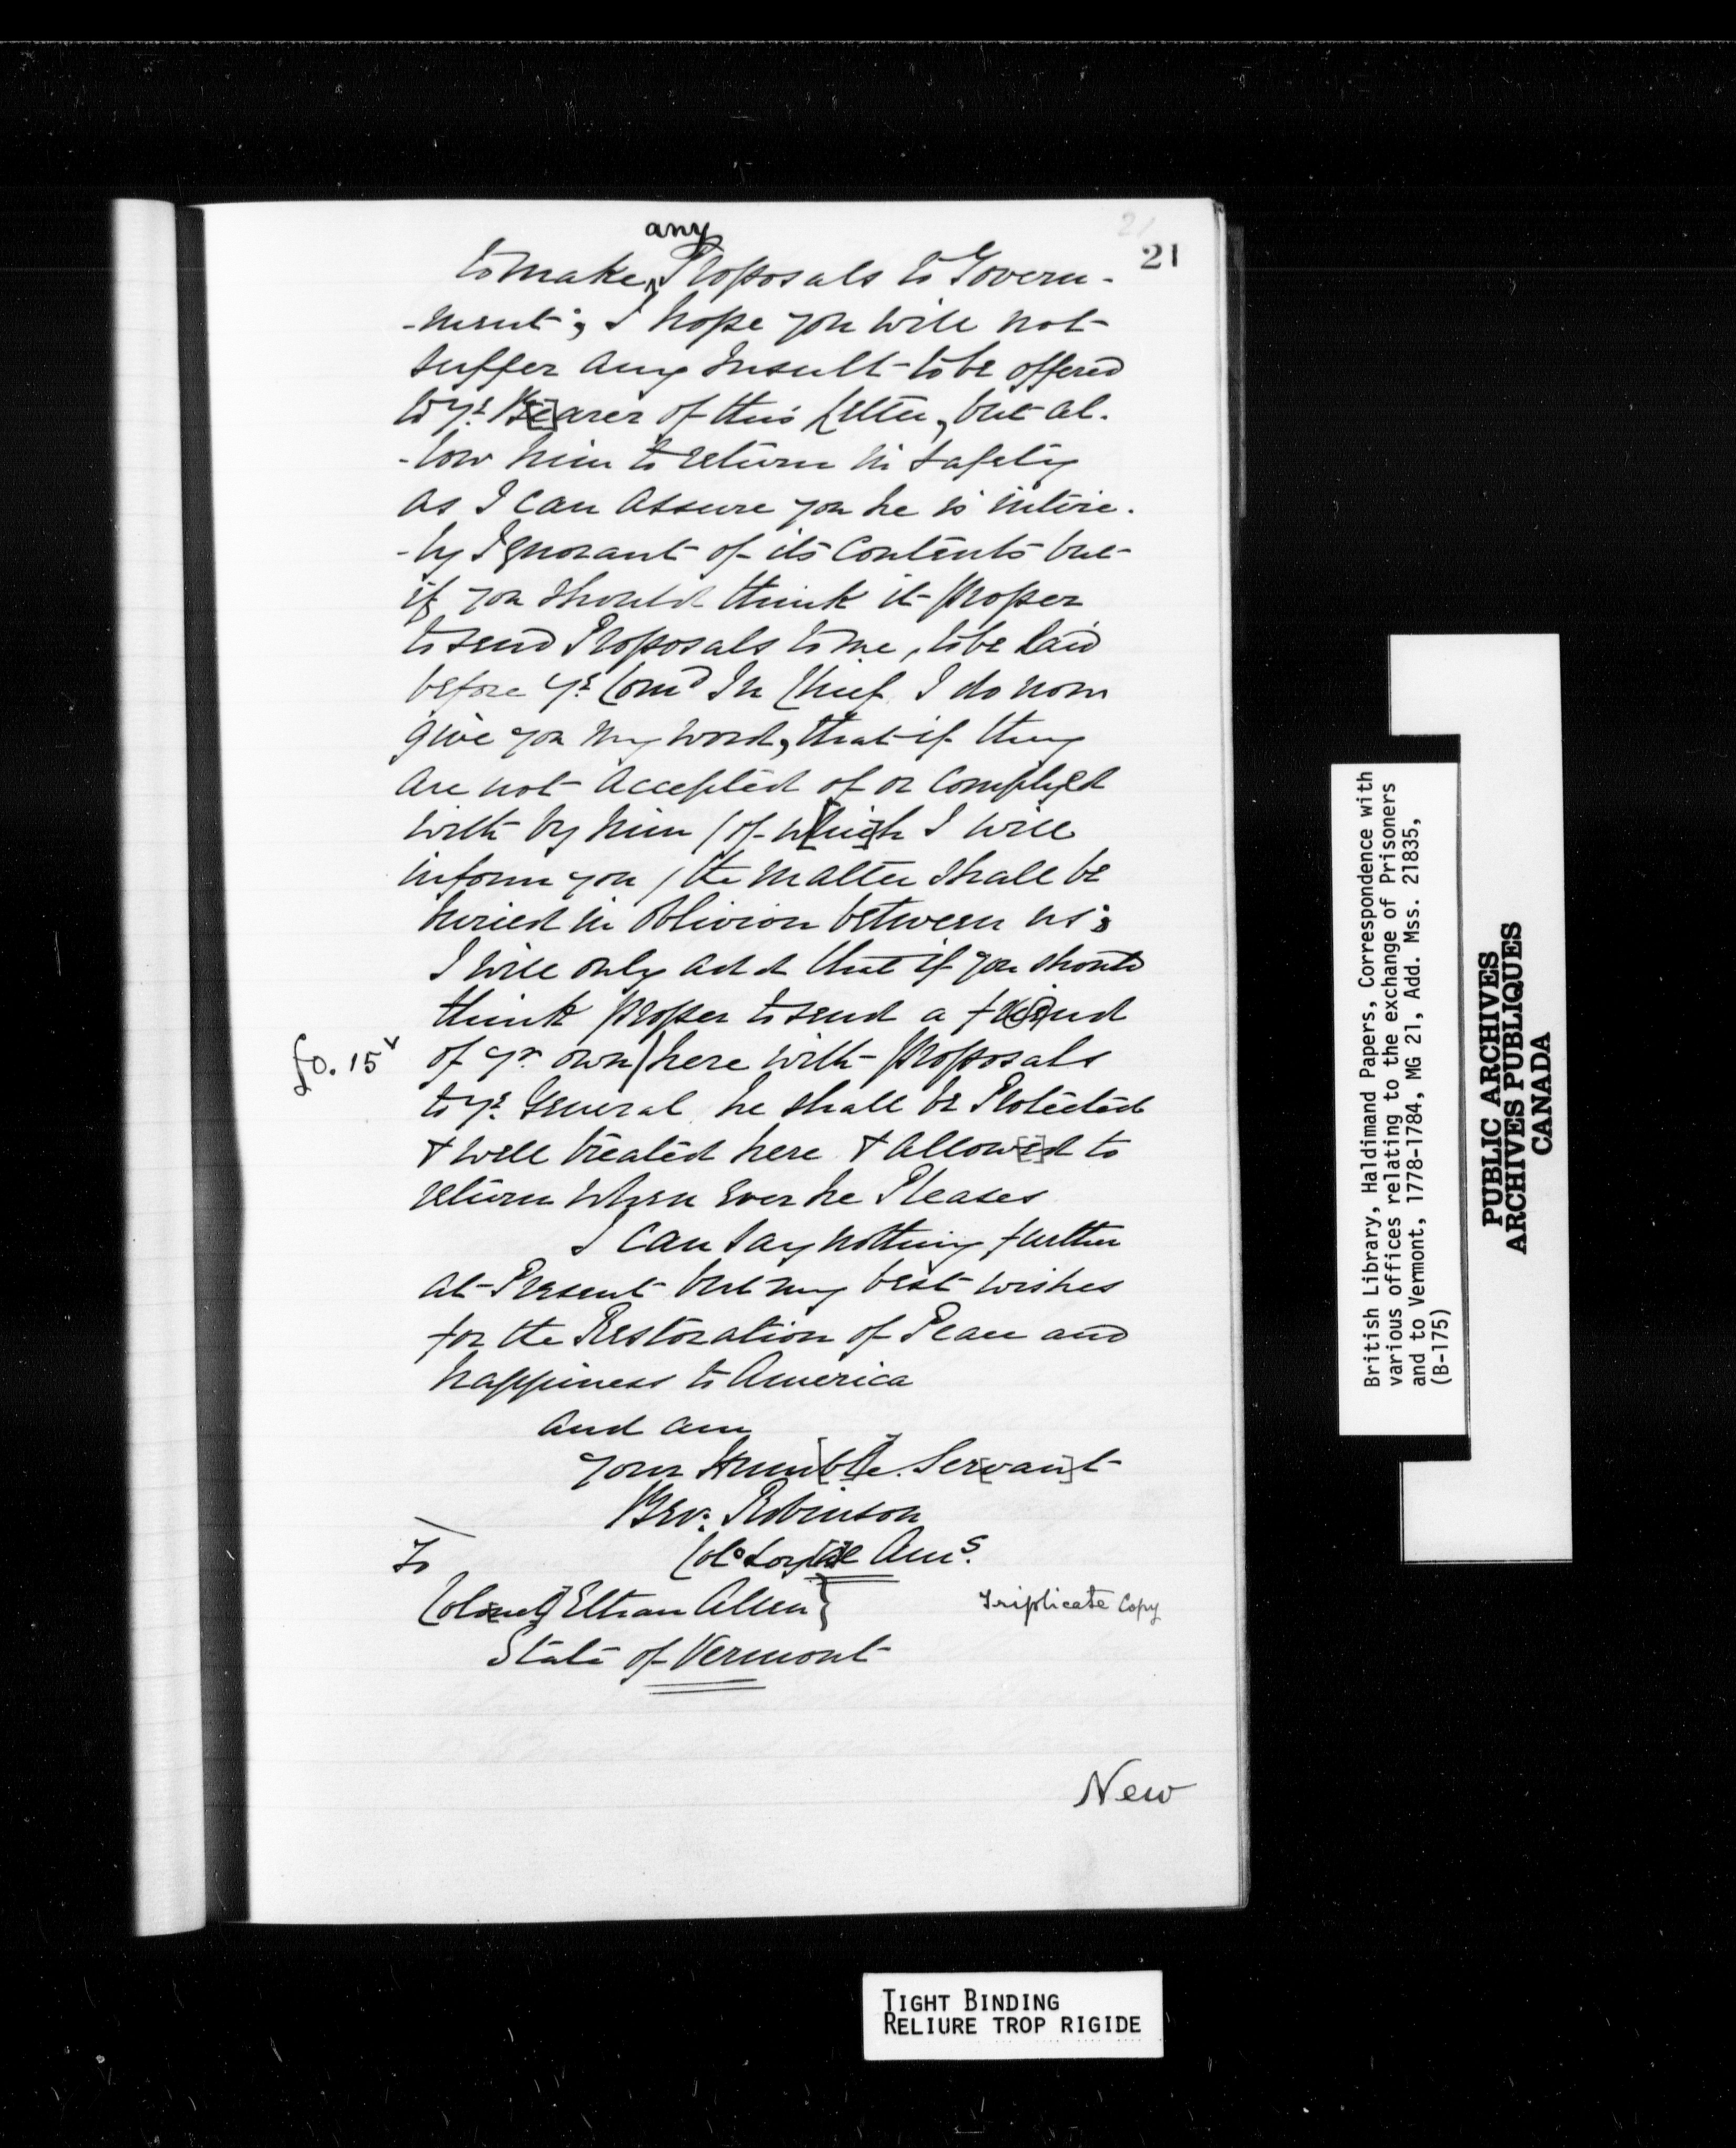 21
21
any
to make Proposals to Govern-
-ment; I hope you will not
suffer any Insult to be offered
to ye. B[e]arer of this Letter, but al-
-low him to return in Safety
as I can assure you he is intire-
-ly Ignorant of its Contents but
if you should think it proper
to send Proposals to me, to be laid
before ye. Comd In Chief I do now
give you my word, that if they
are not accepted of or complyed
with by him (of w[hic]h I will
inform you) the matter shall be
buried in Oblivion between us:
I will only add that if you should
think proper to send a friend
fo. 15v
of yr. own | here with proposals
to ye. General he shall be Protected
& well treated here & allow[e]d to
return when ever he Pleases
I can say nothing further
at Present but my best wishes
for the Restoration of Peace and
happiness to America
and am
your Hum[bl]e. Ser[van]t
Bev. Robinson
Colo Loyal Ams.
To
Col[onel] Ethan Allen }
Triplicate Copy
State of Vermont
New
British Library, Haldimand Papers, Correspondence with
various offices relating to the exchange of Prisoners
and to Vermont, 1778-1784, MG 21, Add. Mss. 21835,
(B-175)
PUBLIC ARCHIVES
ARCHIVES PUBLIQUES
CANADA
TIGHT BINDING
RELIURE TROP RIGIDE